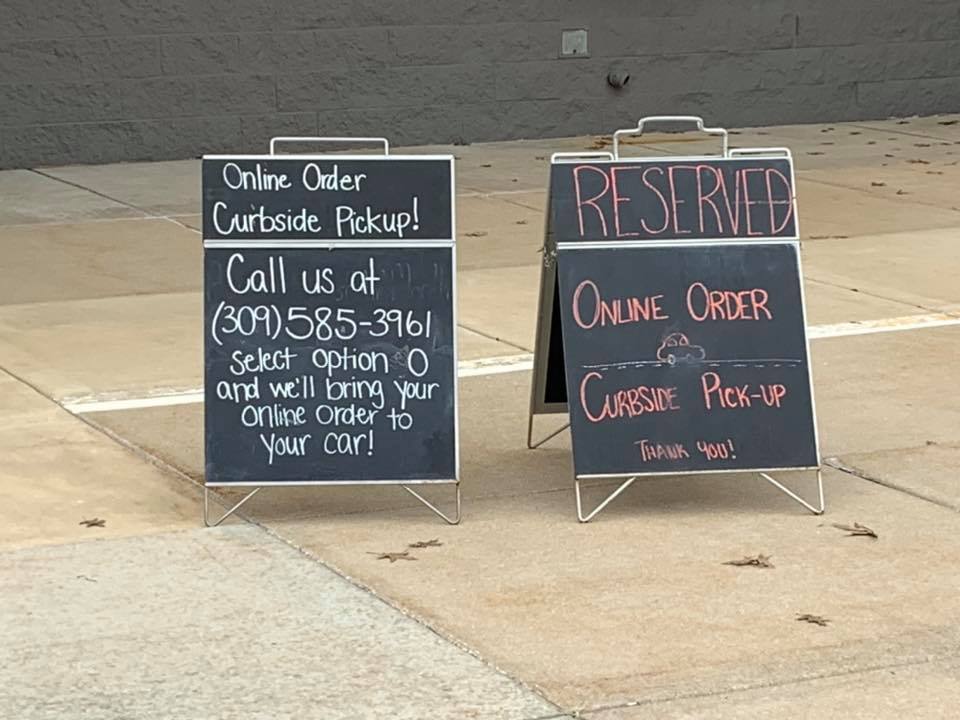 Online Order
Curbside Pickup!
Call us at
(309)585-3961
select option O
and we'll bring your
online order to
your car!
RESERVED
ONLINE ORDER
CURBSIDE PICK-UP
THANK YOU!